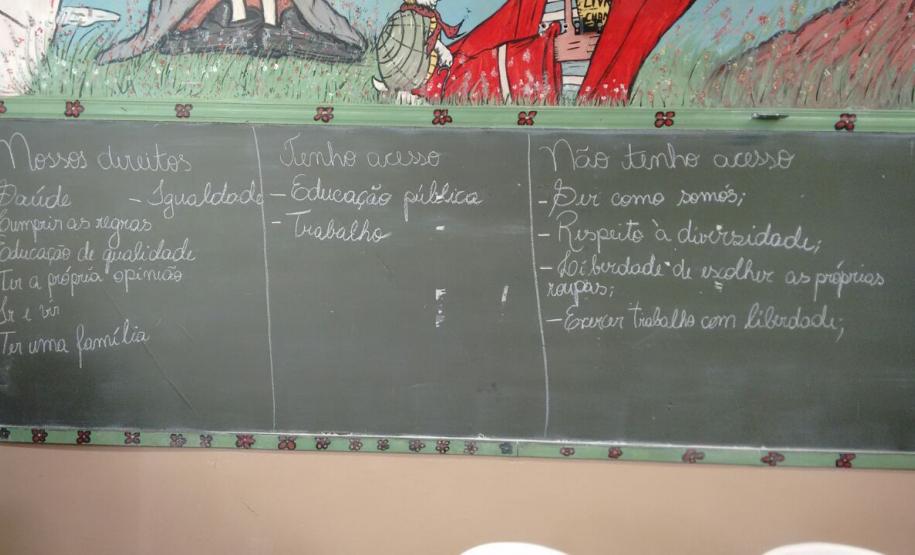 Nossos direitos
Saúde - Igualdade
Cumprir as regras
Educação de qualidade
Ter a própria opinião
Ir e vir
Ter uma família
Tenho acesso
- Educação pública
- Trabalho
Não tenho acesso
- Ser como somós;
- Respeito à diversidade;
- Liberdade de escolher as próprias
roupas;
- Exercer trabalho com liberdade;